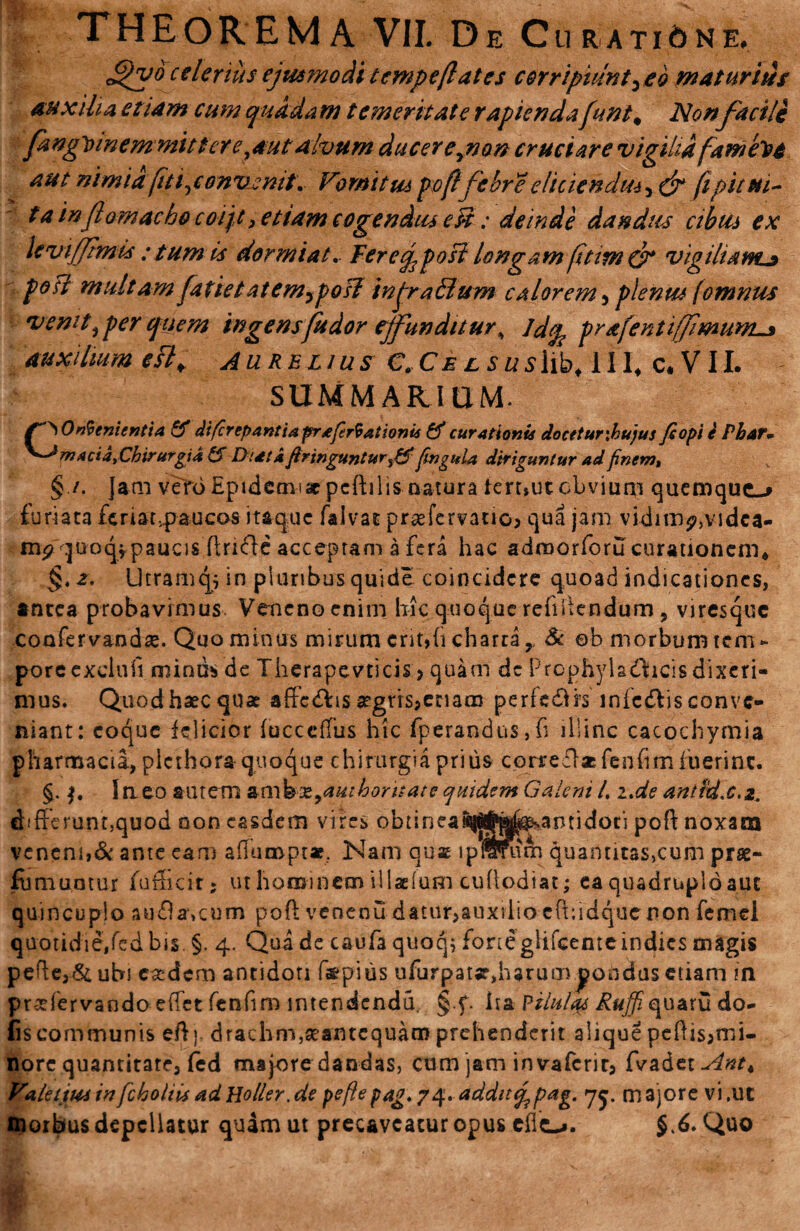 THEOREMA VII. DE CURATIÒNE.
Qvò celeriùs ejusmodi tempestates corripiunt, eò maturiùs
auxilia etiam cum quâdam temeritate rapienda sunt. Non facilè
sangvinem mittere, aut alvum ducere, non cruciare vigiliâ faméve
aut nimiâ siti, convenit. Vomitus post febrē eliciendus, & si pituita
in stomacho coijt, etiam cogendus est: deindè dandus cibus ex
levissimis: tum is dormiat. Ferè q; post longam sitim & vigiliam
post multam satietatem, post infractum calorem, plenus somnus
venit, per quem ingens sudor effunditur, Idq; præsentissimum
auxilium est. AURELIUS C. CELSUS lib. III. c. VII.
SUMMARIUM.
COnvenientia & discrepantia præservationis & curationis docetur: hujus scopi è Phar-
maciâ, Chirurgiâ & Diætâ stringuntur, & singula diriguntur ad finem.
§. 1. Jam verò Epidemiæ pestilis natura fert, ut obvium quemque
furiata feriat, paucos itaque salvat præservatio, quâ jam vidimꝰ, videa-
mꝰ quoq; paucis strictè acceptam à ferâ hac admorsorū curationem.
§. 2. Utramq; in pluribus quidē coincidere quoad indicationes,
antea probavimus. Veneno enim hîc quoque resistendum, viresque
conservandæ. Quo minus mirum erit, si chartâ, & ob morbum tem-
pore exclusi minùs de Therapevticis, quàm de Prophylacticis dixeri-
mus. Quod hæc quæ affectis ægris, etiam perfectis infectis conve-
niant: eoque felicior successus hîc sperandus, si illinc cacochymia
pharmaciâ, plethora quoque chirurgiâ priùs correctæ sensim fuerint.
§. 3. In eo autem ambæ, authoritate quidem Galeni l. 2. de antid. c. 2.
differunt, quod non easdem vires obtineat antidoti post noxam
veneni, & ante eam assumptæ. Nam quæ ipsarum quantitas, cum præ-
sumuntur sufficit; ut hominem illæsum custodiat; ea quadruplò aut
quincuplo aucta, cum post venenū datur, auxilio est: idque non semel
quotidiè, sed bis. §. 4. Quâ de causâ quoq; fortè gliscente indies magis
peste, & ubi eædem antidoti sæpiùs usurpatæ, harum pondus etiam in
præservando esset sensim intendendū. §. 5. Ita Pilulas Ruffi quarū do-
sis communis est j. drachm, æantequàm prehenderit aliquē pestis, mi-
nore quantitate, sed majore dandas, cum jam invaserit, svadet Ant.
Valetius in scholiis ad Holler. de peste pag. 74. addit q; pag. 75. majore vi, ut
morbus depellatur quàm ut precaveatur opus esse. §. 6. Quo